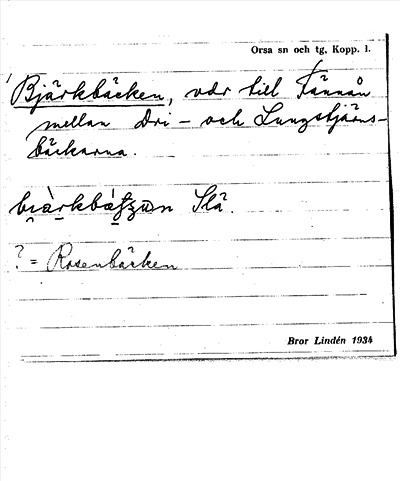 Orsa sn och tg, Kopp. l.
Bjärkbäcken, vdr till Tännån
mellan Dri- och Lungstjärns-
bäckarna.
Slä.
? = Rosenbäcken
Bror Lindén 1934